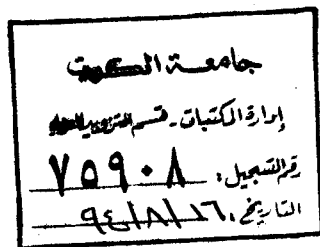 جامعة الكويت
إدارة المكتبات - قسم التزويد
رقم التسجيل: ٧٥٩٠٨
التاريخ: ٩٤/٨/١٦